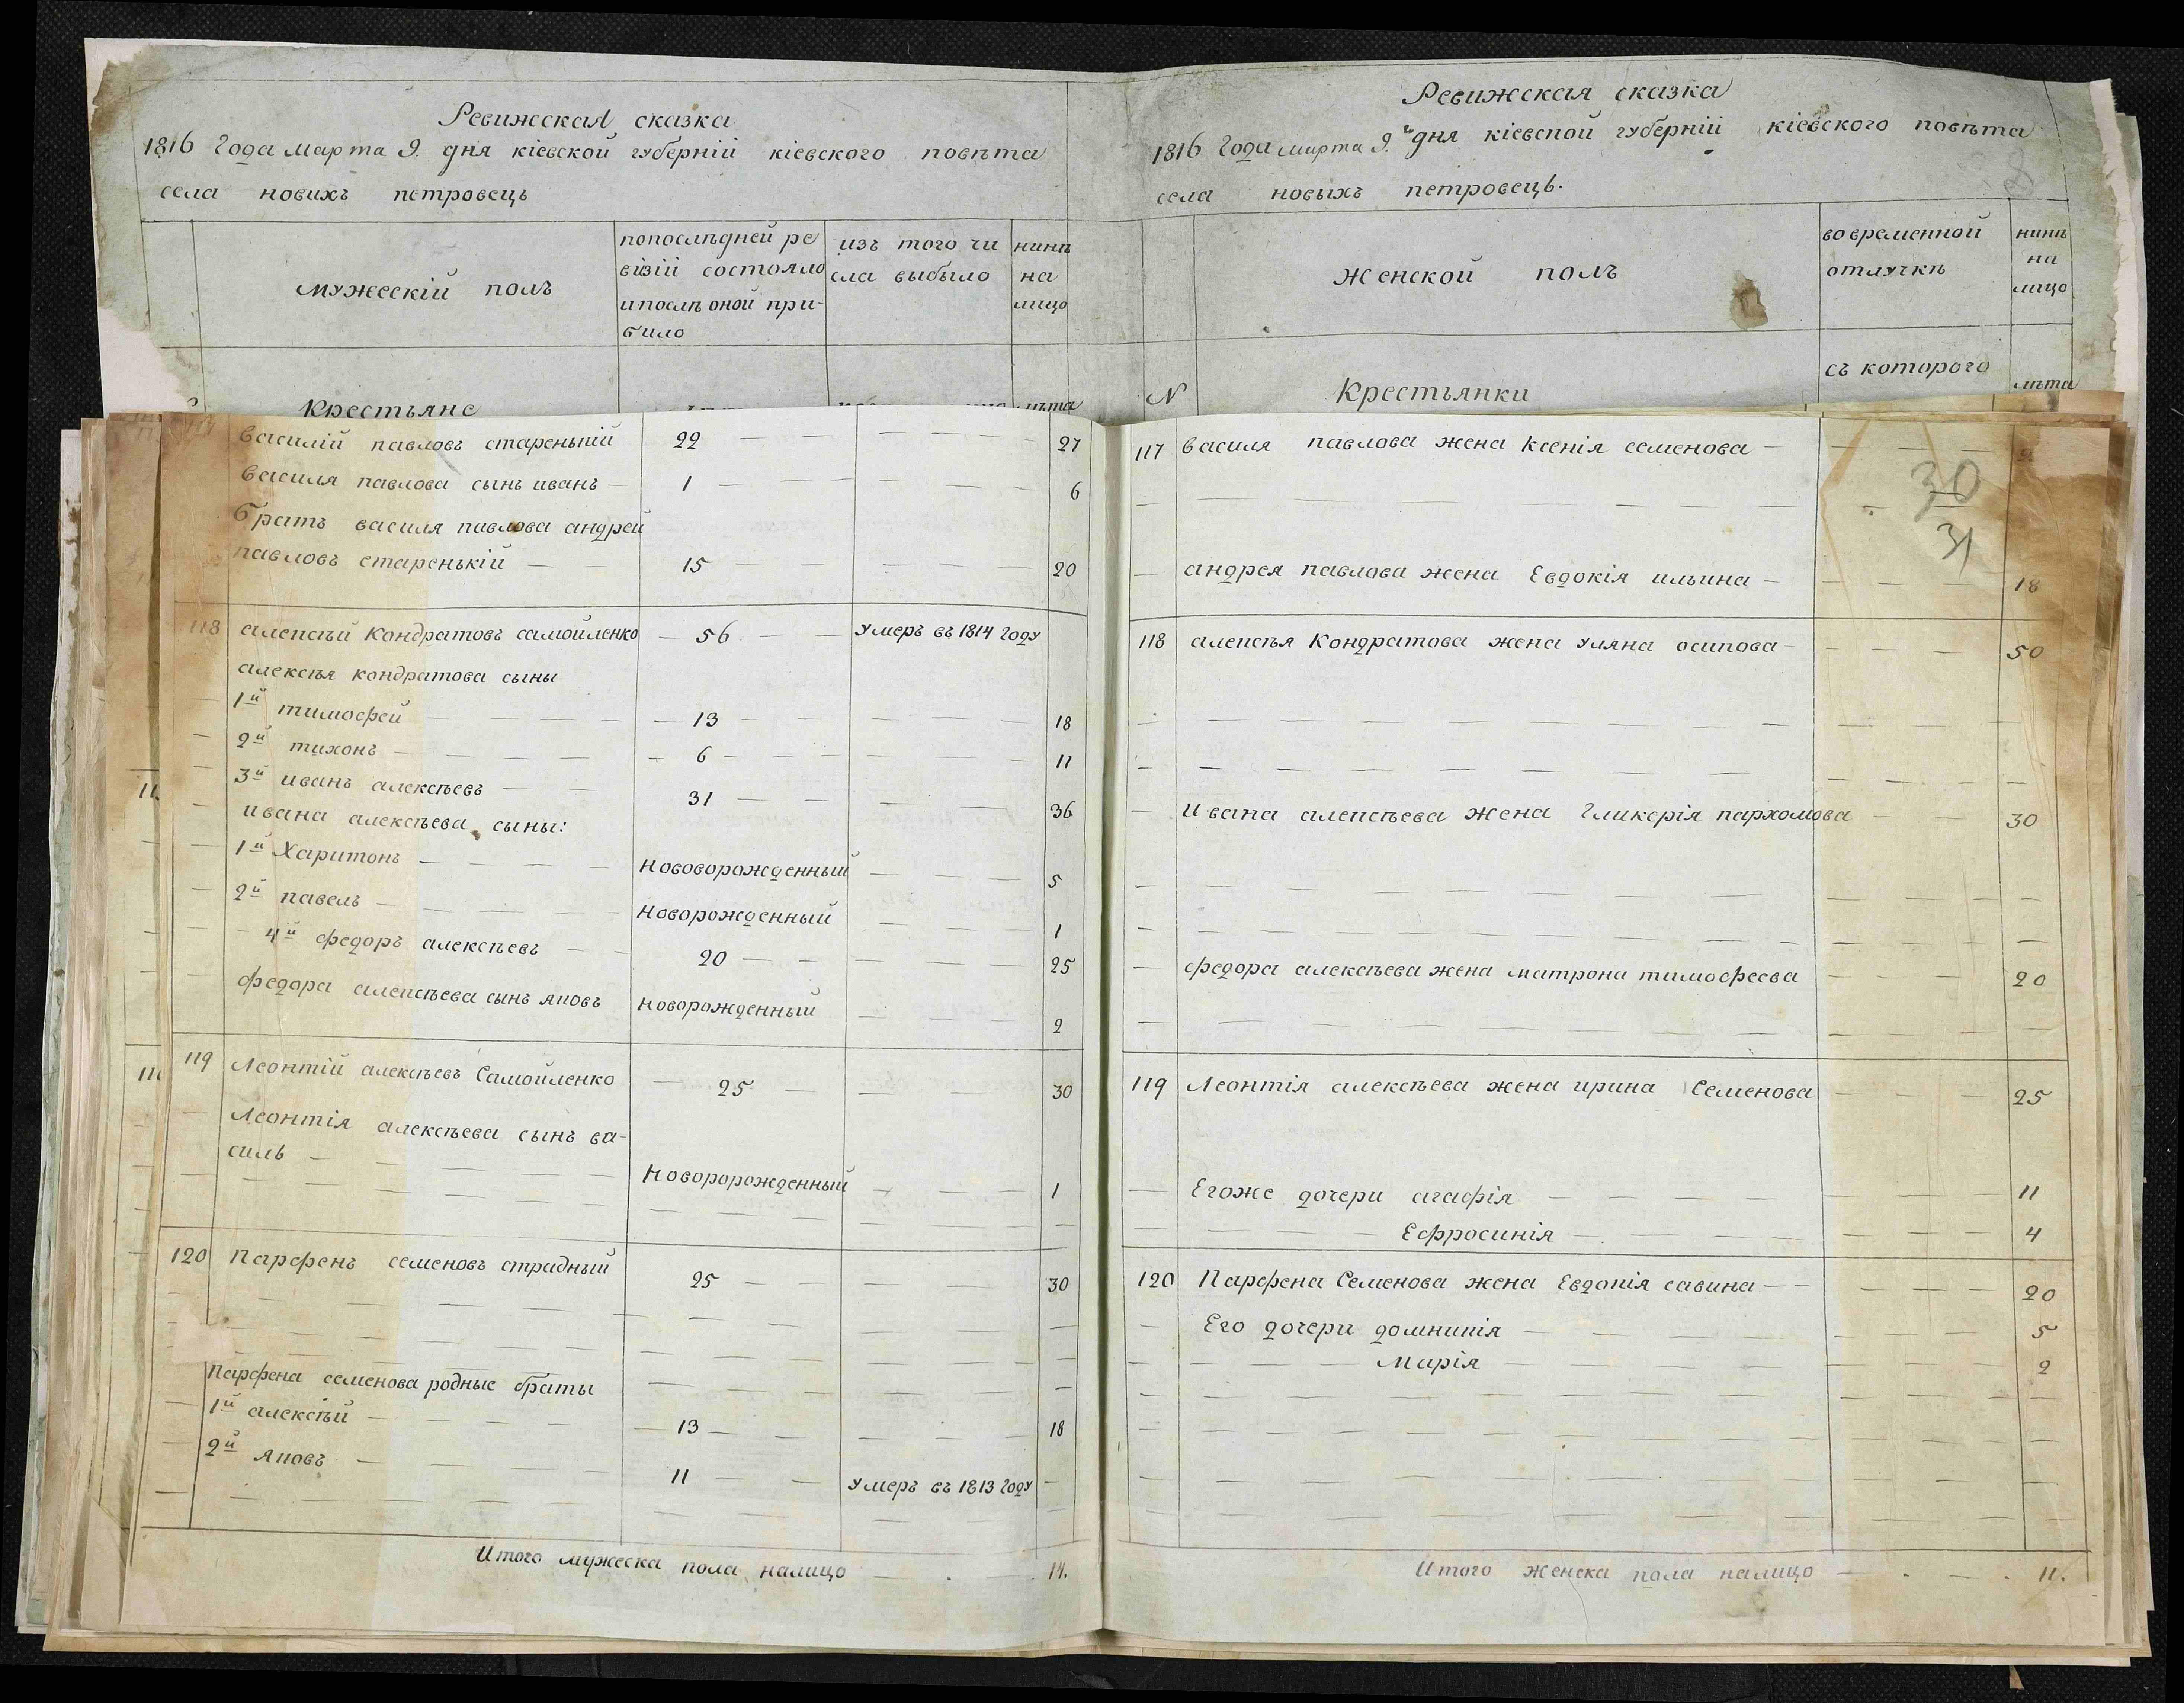 Ревижская сказка
1816 Года марта 9. дня кіевской губерніи кіевского повѣта
села новихъ петровець
мужескій полъ
попослѣдней ре
визіи состояло
и послѣ оной при-
било
изъ того чи
сла выбыло
нинѣ
на
лицо
Крестьяне
лѣта
Василій павловъ старенькій 22 — — — — — — 27
Василя павлова сынъ иванъ — 1 — — — — — — 6
братъ василя павлова андрей
павловъ старенькій — — 15 — — — — — 20
118 алексѣй Кондратовъ самойленко — 56 — — Умеръ въ 1814 году
алексѣя кондратова сыны
1й тимофей — — — — 13 — — — — 18
2й тихонъ — — — — 6 — — — — 11
3й иванъ алексѣевъ — — 31 — — — — 36
ивана алексѣева сыны:
1й Харитонъ — — — — Нововорожденный — — — 5
2й павелъ — — — — Новорожденный — — — 1
4й федоръ алексѣевъ — — 20 — — — — — 25
федора алексѣева сынъ яковъ Новорожденный — — — 2
119 Леонтій алексѣевъ Самойленко — 25 — — — — 30
Леонтія алексѣева сынъ ва-
силь — — — — — Новоророжденный — — — 1
120 Парфенъ семеновъ страдный 25 — — — — 30
Парфена семенова родные браты — — — — — —
1й алексѣй — — — — 13 — — — — 18
2й яковъ — — — — 11 — — Умеръ въ 1813 Году —
Итого мужеска пола налицо — . — . 14.
Ревижская сказка
1816 Года марта 9.й дня кіевской губерніи кіевского повѣта
села новыхъ петровець.
Женской полъ
во временной
отлучкѣ
нинѣ
на
лицо
N Крестьянки
съ которого
лѣта
30
31
117 Василя павлова жена Ксенія семенова —
— андрея павлова жена Евдокія ильина — — — — 18
118 алексѣя Кондратова жена уляна осипова — — — — 50
— Ивана алексѣева жена Гликерія пархомова — — 30
— федора алексѣева жена матрона тимофеева — — — 20
119 Леонтія алексѣева жена ирина Семенова — — — 25
— Егоже дочери агафія — — — — — — — 11
— — — — Ефросинія — — — — — — — 4
120 Парфена Семенова жена Евдокія савина — — — — — 20
— Его дочери домникія — — — — — — — 5
— — — — Марія — — — — — — — 2
Итого женска пола налицо — . — . 11.